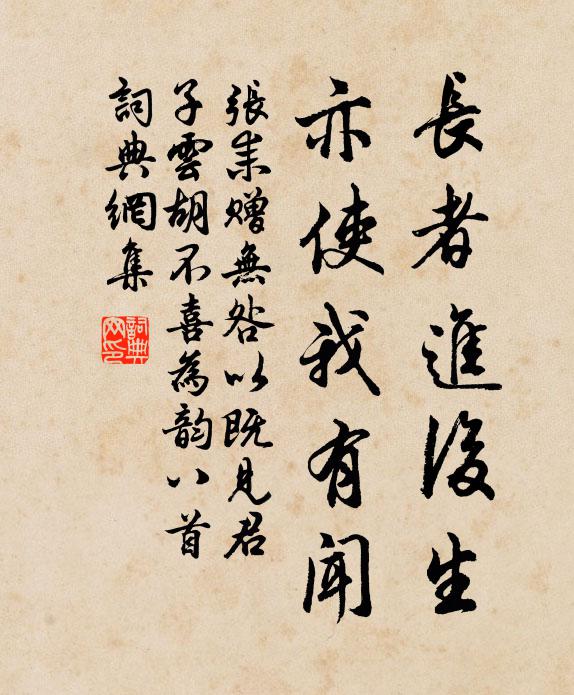 長者進後生
亦使我有聞
張耒贈無咎以既見君
子雲胡不喜為韵八首
詞典網集
詞典
网印